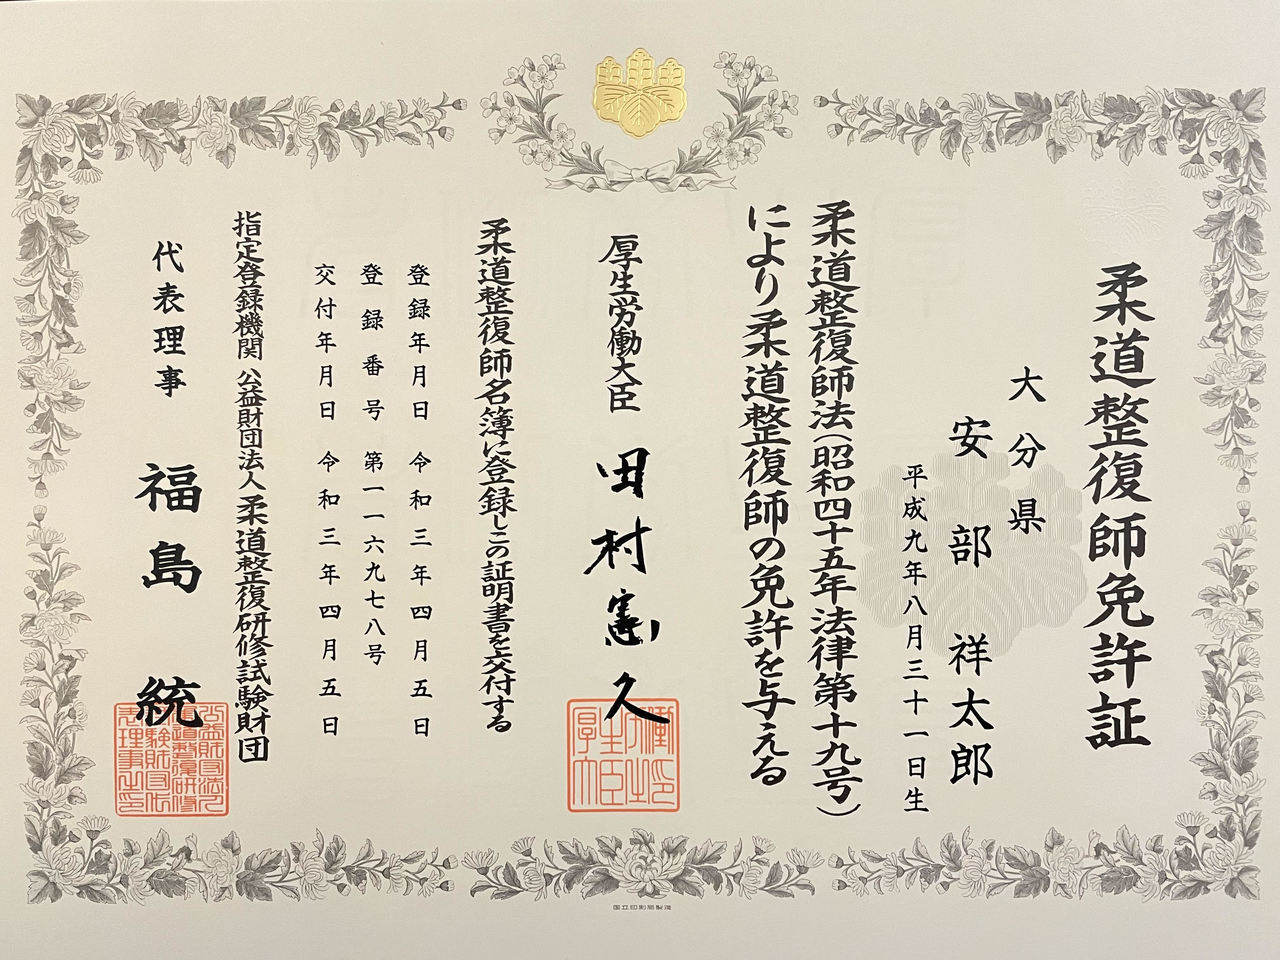 柔道整復師免許証
大分県
安部祥太郎
平成九年八月三十一日生
柔道整復師法(昭和四十五年法律第十九号)
により柔道整復師の免許を与える
厚生労働大臣 田村憲久
柔道整復師名簿に登録しこの証明書を交付する
登録年月日 令和三年四月五日
登録番号 第一一六九七八号
交付年月日 令和三年四月五日
指定登録機関 公益財団法人 柔道整復研修試験財団
代表理事 福島統
国立印刷局製造